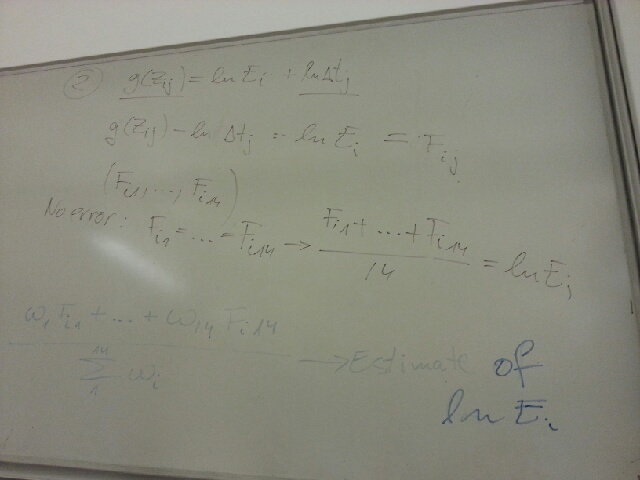 ② g(Zij) = ln Ei + ln Δtj
g(Zij) - ln Δtj = ln Ei = Fij
(Fi1, ..., Fi14)
No error: Fi1 = ... = Fi14 → (Fi1 + ... + Fi14) / 14 = ln Ei
(ω1 Fi1 + ... + ω14 Fi14) / (14 Σ 1 ωi) → Estimate of
ln Ei